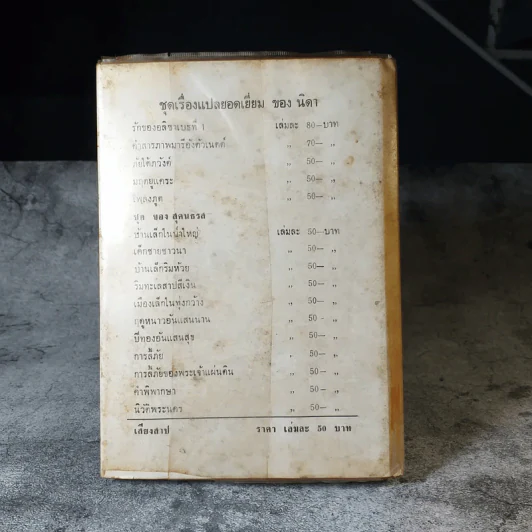 ชุดเรื่องแปลยอดเยี่ยม ของ นิดา
รักของอลิซาเบธที่ 1 เล่มละ 80—บาท
คำสารภาพมารีอังตัวเนตต์ ,, 70— ,,
ภัยใต้ภวังค์ ,, 50— ,,
มฤตยูแคระ ,, 50— ,,
,, 50— ,,
ชุด ของ สุคนธรส
บ้านเล็กในป่าใหญ่ เล่มละ 50—บาท
เด็กชายชาวนา ,, 50— ,,
บ้านเล็กริมห้วย ,, 50— ,,
ริมทะเลสาปสีเงิน ,, 50— ,,
เมืองเล็กในทุ่งกว้าง ,, 50 - ,,
ฤดูหนาวอันแสนนาน ,, 50 - ,,
ปีทองอันแสนสุข ,, 50 - ,,
การลี้ภัย ,, 50— ,,
การลี้ภัยของพระเจ้าแผ่นดิน ,, 50— ,,
คำพิพากษา ,, 50— ,,
นิวัติพระนคร ,, 50— ,,
เสียงสาป ราคา เล่มละ 50 บาท